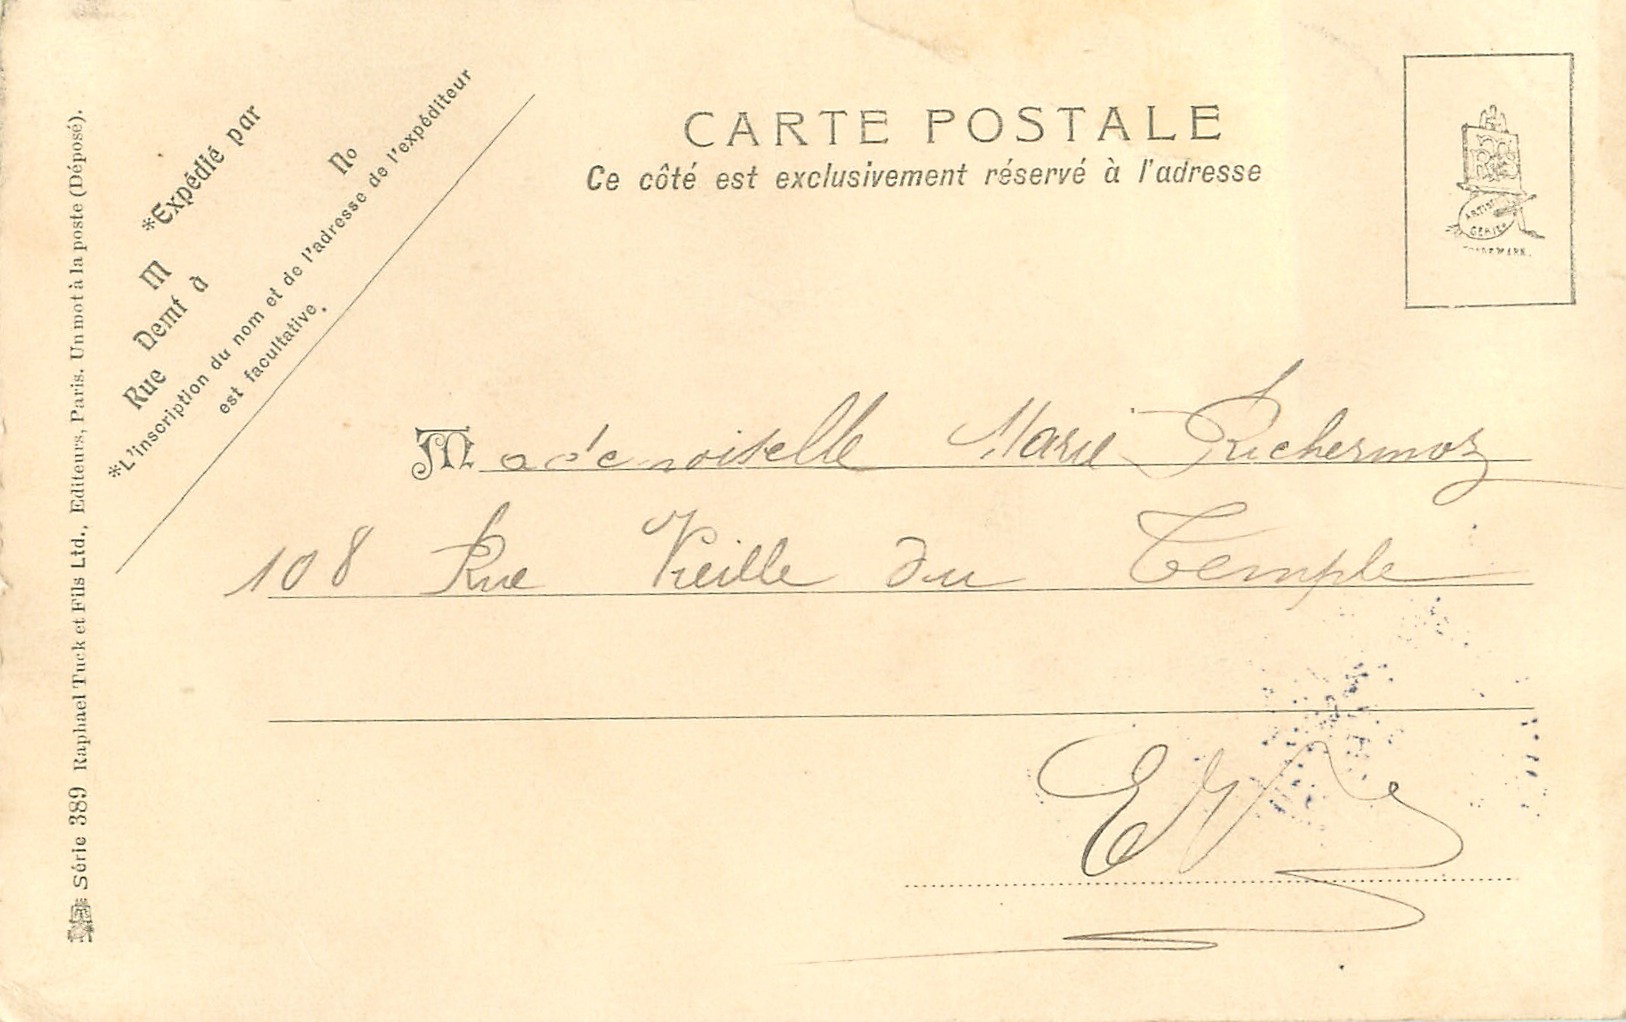 CARTE POSTALE
Ce côté est exclusivement réservé à l'adresse
*Expédié par
M
Demt à
Rue No
*L'inscription du nom et de l'adresse de l'expéditeur
est facultative.
ARTISTIC
SERIES
TRADE MARK.
Mademoiselle Marie Richermoz
108 Rue Vieille du Temple
EV
Série 389 Raphael Tuck et Fils Ltd., Editeurs, Paris. Un mot à la poste (Déposé).